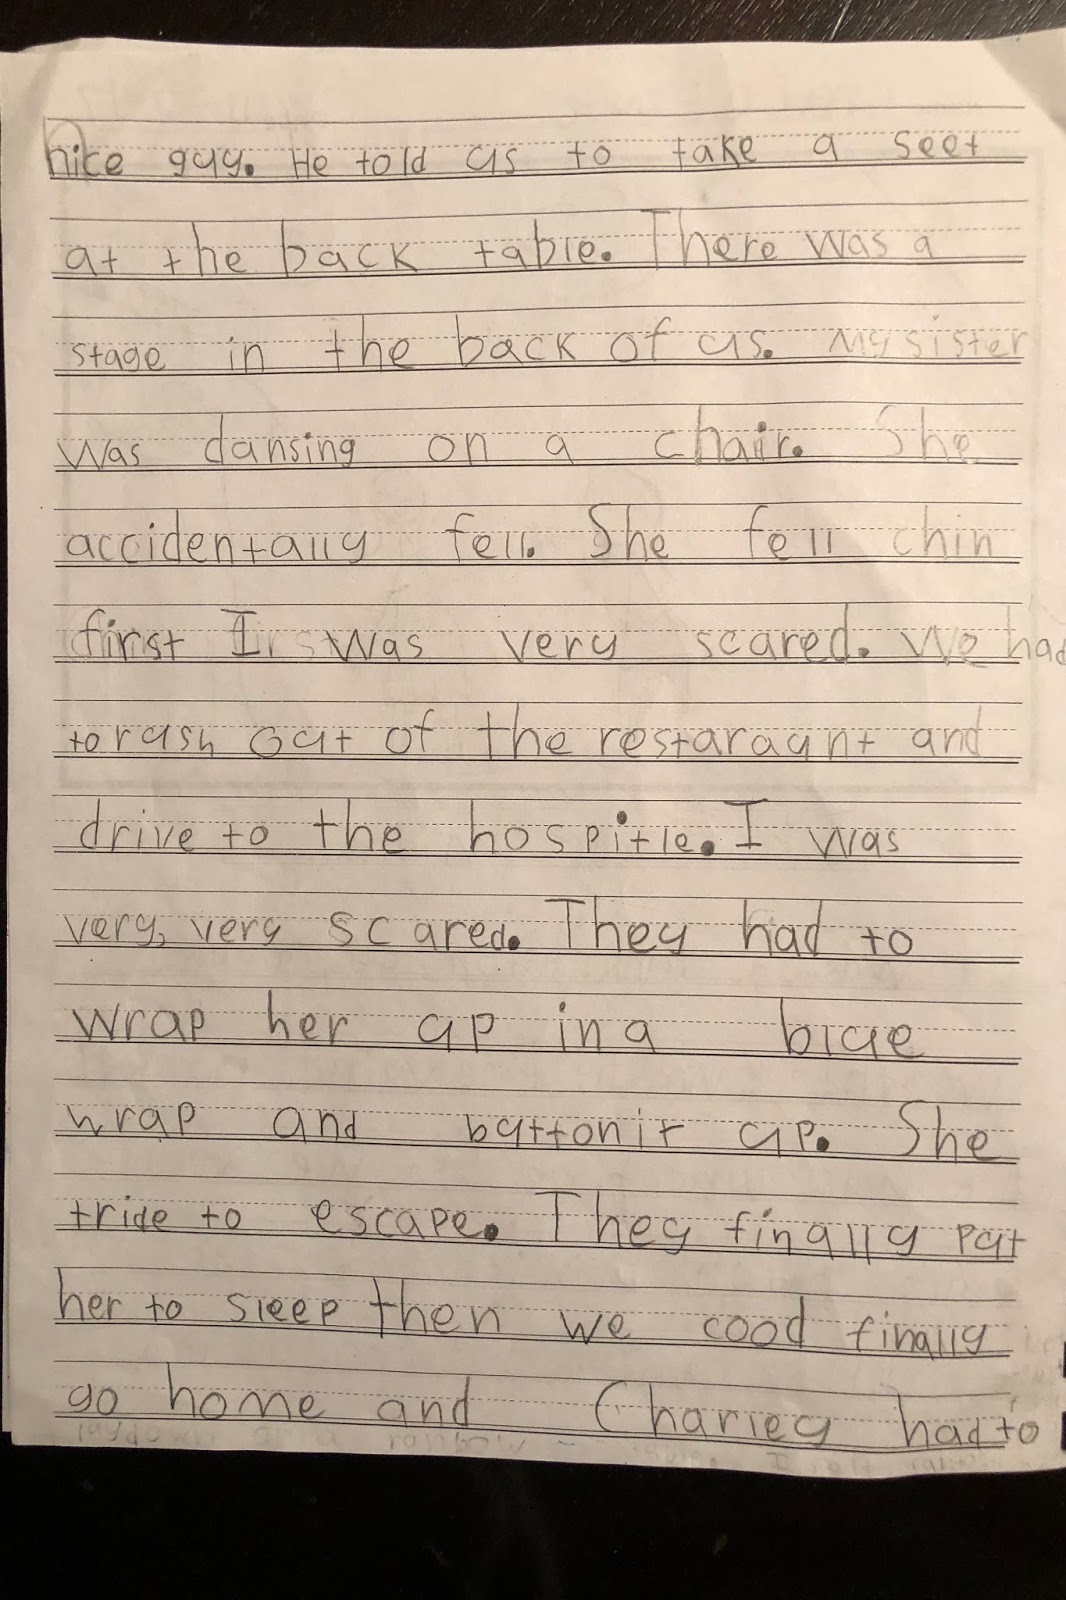 nice guy. He told us to take a seet
at the back table. There was a
stage in the back of us. My sister
was dansing on a chair. She
accidentally fell. She fell chin
first I was very scared. We had
to rush out of the restaraunt and
drive to the hospitle. I was
very, very scared. They had to
wrap her up in a blue
wrap and button it up. She
tride to escape. They finally put
her to sleep then we cood finally
go home and Charley had to